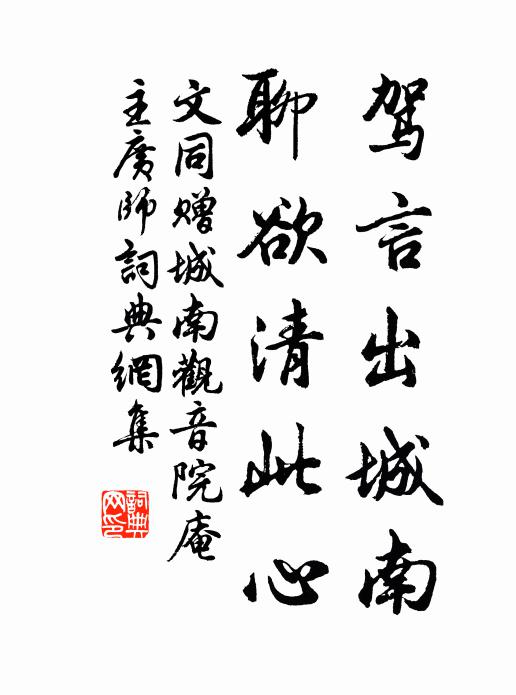 驾言出城南
聊欲清此心
文同赠城南觀音院庵
主廣师詞典網集
詞典
网印